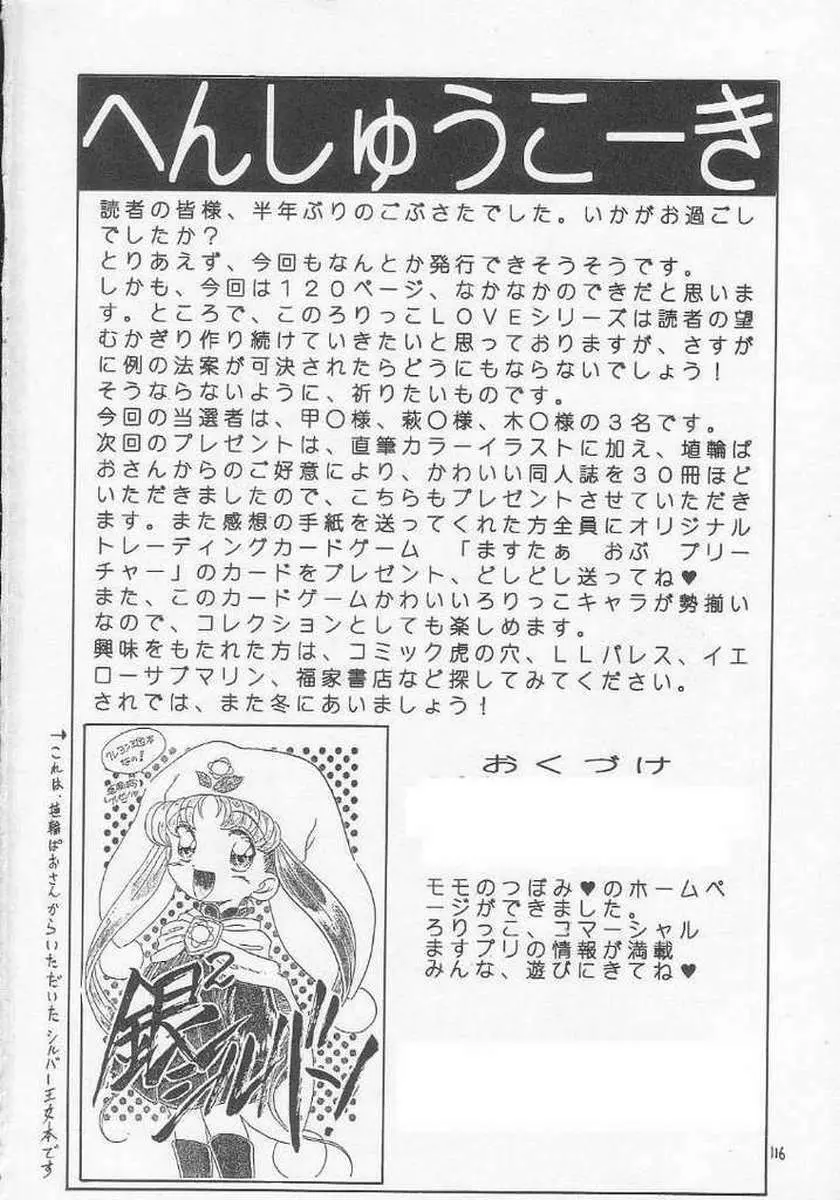 へんしゅうこーき
読者の皆様、半年ぶりのごぶさたでした。いかがお過ごし
でしたか？
とりあえず、今回もなんとか発行できそうそうです。
しかも、今回は１２０ページ、なかなかのできだと思いま
す。ところで、このろりっこＬＯＶＥシリーズは読者の望
むかぎり作り続けていきたいと思っておりますが、さすが
に例の法案が可決されたらどうにもならないでしょう！
そうならないように、祈りたいものです。
今回の当選者は、甲〇様、萩〇様、木〇様の３名です。
次回のプレゼントは、直筆カラーイラストに加え、埴輪ぱ
おさんからのご好意により、かわいい同人誌を３０冊ほど
いただきましたので、こちらもプレゼントさせていただき
ます。また感想の手紙を送ってくれた方全員にオリジナル
トレーディングカードゲーム　「ますたぁ　おぶ　プリー
チャー」のカードをプレゼント、どしどし送ってね♥
また、このカードゲームかわいいろりっこキャラが勢揃い
なので、コレクションとしても楽しめます。
興味をもたれた方は、コミック虎の穴、ＬＬパレス、イエ
ローサブマリン、福家書店など探してみてください。
されでは、また冬にあいましょう！
→これは、埴輪ぱおさんからいただいたシルバー王女本です
銀2
シルバーン
おくづけ
モモのつぼみ♥のホームペ
ージができました。
ろりっこ、コマーシャル
ますプリの情報が満載
みんな、遊びにきてね♥
116